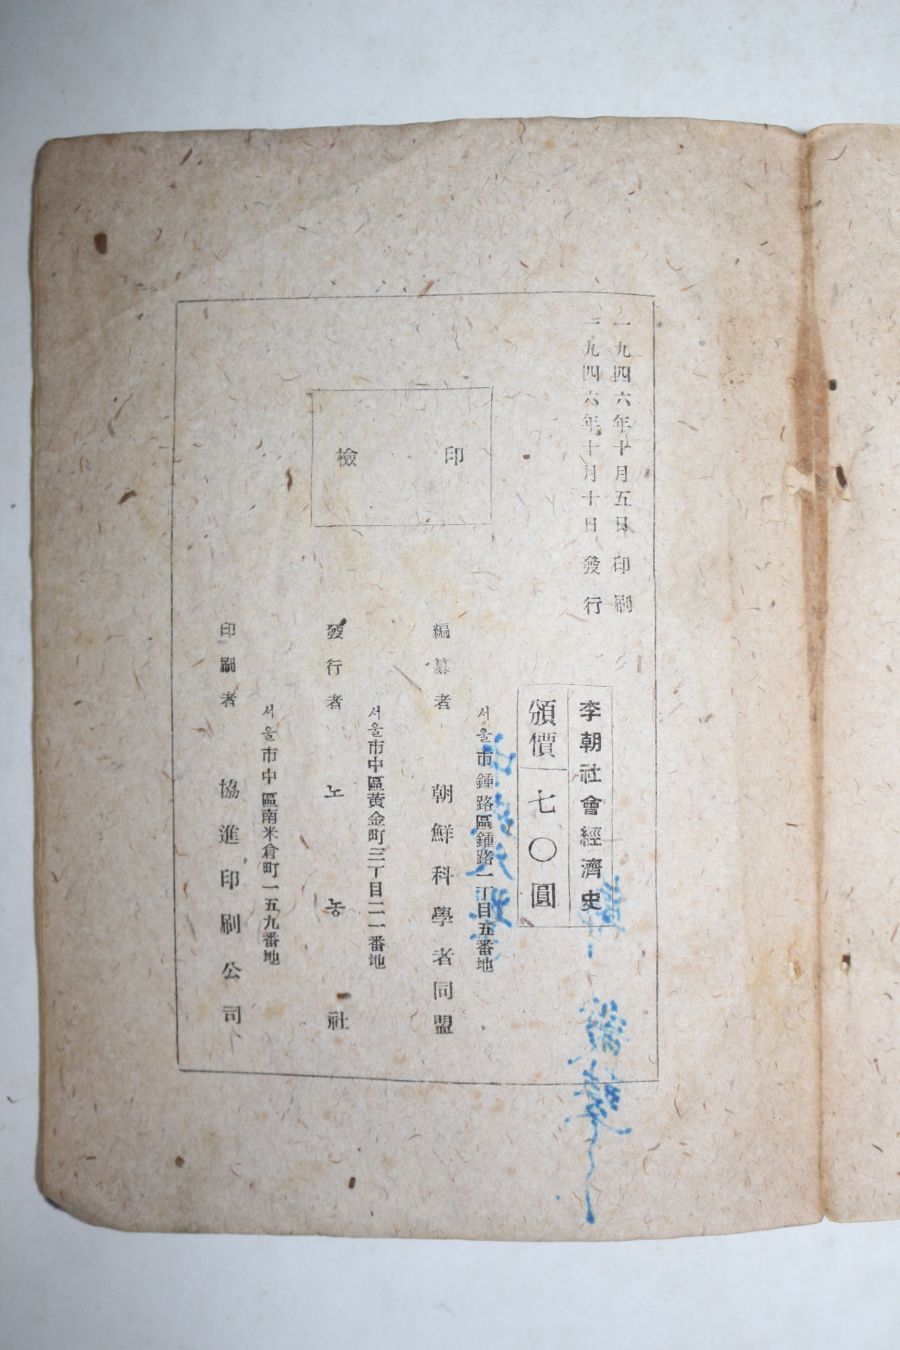 一九四六年十月五日 印刷
一九四六年十月十日 發行
李朝社會經濟史
頒價 七〇圓
印
檢
서울市鍾路區鍾路一丁目五番地
編纂者 朝鮮科學者同盟
서울市中區黃金町三丁目二一一番地
發行者 노농社
서울市中區南米倉町一五九番地
印刷者 協進印刷公司